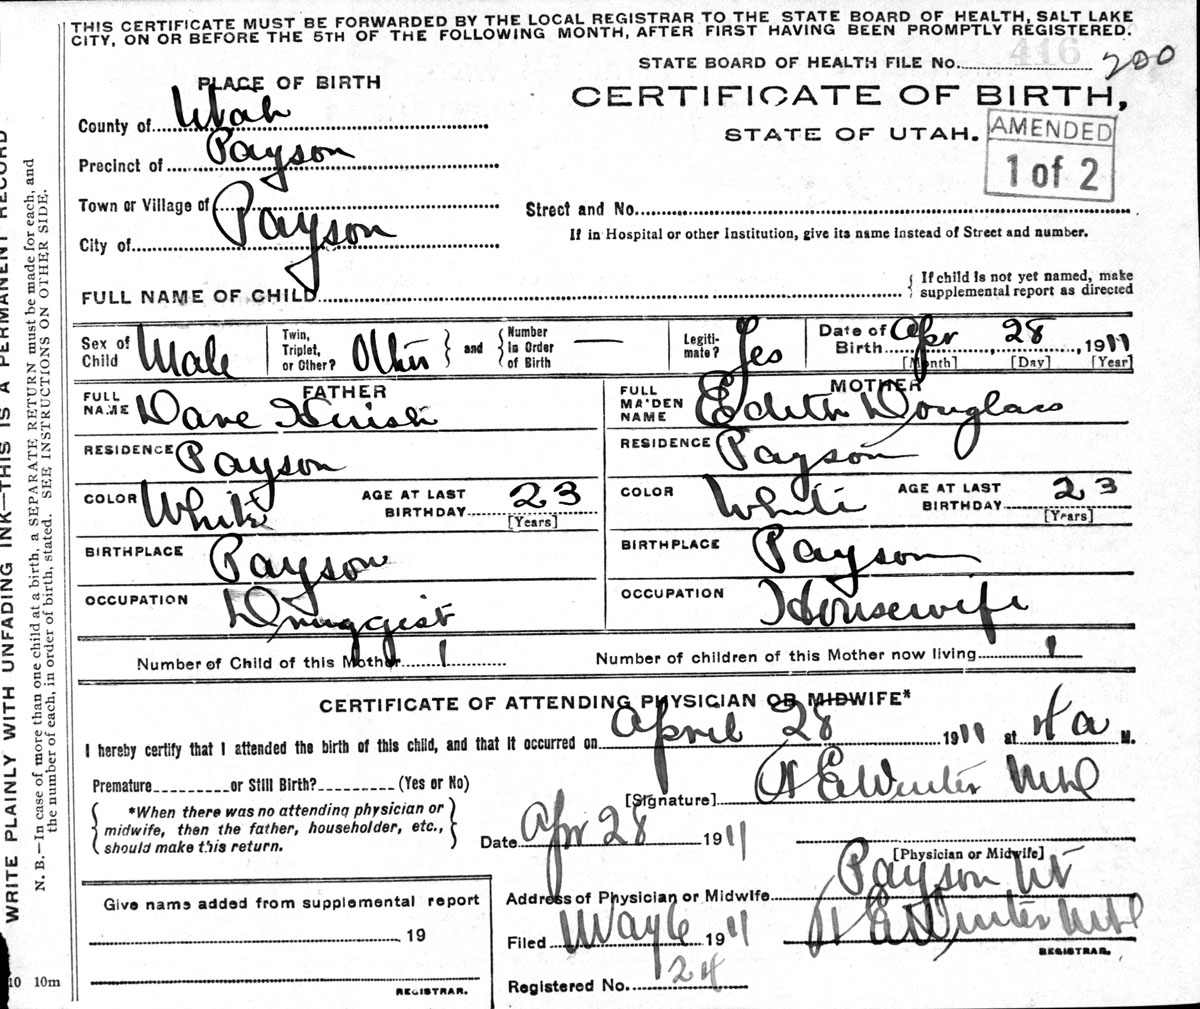 THIS CERTIFICATE MUST BE FORWARDED BY THE LOCAL REGISTRAR TO THE STATE BOARD OF HEALTH, SALT LAKE
CITY, ON OR BEFORE THE 5TH OF THE FOLLOWING MONTH, AFTER FIRST HAVING BEEN PROMPTLY REGISTERED.
416
STATE BOARD OF HEALTH FILE No. 200
PLACE OF BIRTH
CERTIFICATE OF BIRTH,
STATE OF UTAH.
AMENDED
1 of 2
County of Utah
Precinct of Payson
Town or Village of Payson
City of
Street and No.
If in Hospital or other Institution, give its name instead of Street and number.
FULL NAME OF CHILD
{ If child is not yet named, make
supplemental report as directed
Sex of Child Male
Twin, Triplet, or Other? Other } and { Number in Order of Birth —
Legitimate? Yes
Date of Birth Apr 28, 1911
[Month] [Day] [Year]
FATHER
FULL NAME Dave Huish
RESIDENCE Payson
COLOR White AGE AT LAST BIRTHDAY 23
[Years]
BIRTHPLACE Payson
OCCUPATION Druggist
MOTHER
FULL MAIDEN NAME Edith Douglass
RESIDENCE Payson
COLOR White AGE AT LAST BIRTHDAY 23
[Years]
BIRTHPLACE Payson
OCCUPATION Housewife
Number of Child of this Mother 1 Number of children of this Mother now living 1
CERTIFICATE OF ATTENDING PHYSICIAN OR MIDWIFE*
I hereby certify that I attended the birth of this child, and that it occurred on April 28 1911 at 4 a M.
Premature or Still Birth? (Yes or No)
{ *When there was no attending physician or
midwife, then the father, householder, etc.,
should make this return. }
[Signature]
Winter MD
Date Apr 28 1911
[Physician or Midwife]
Address of Physician or Midwife Payson Ut
Give name added from supplemental report
19
REGISTRAR.
Filed May 6 1911 Winter MD
REGISTRAR.
Registered No. 24
WRITE PLAINLY WITH UNFADING INK—THIS IS A PERMANENT RECORD
N. B.—In case of more than one child at a birth, a SEPARATE RETURN must be made for each, and
the number of each, in order of birth, stated. SEE INSTRUCTIONS ON OTHER SIDE.
10 10m